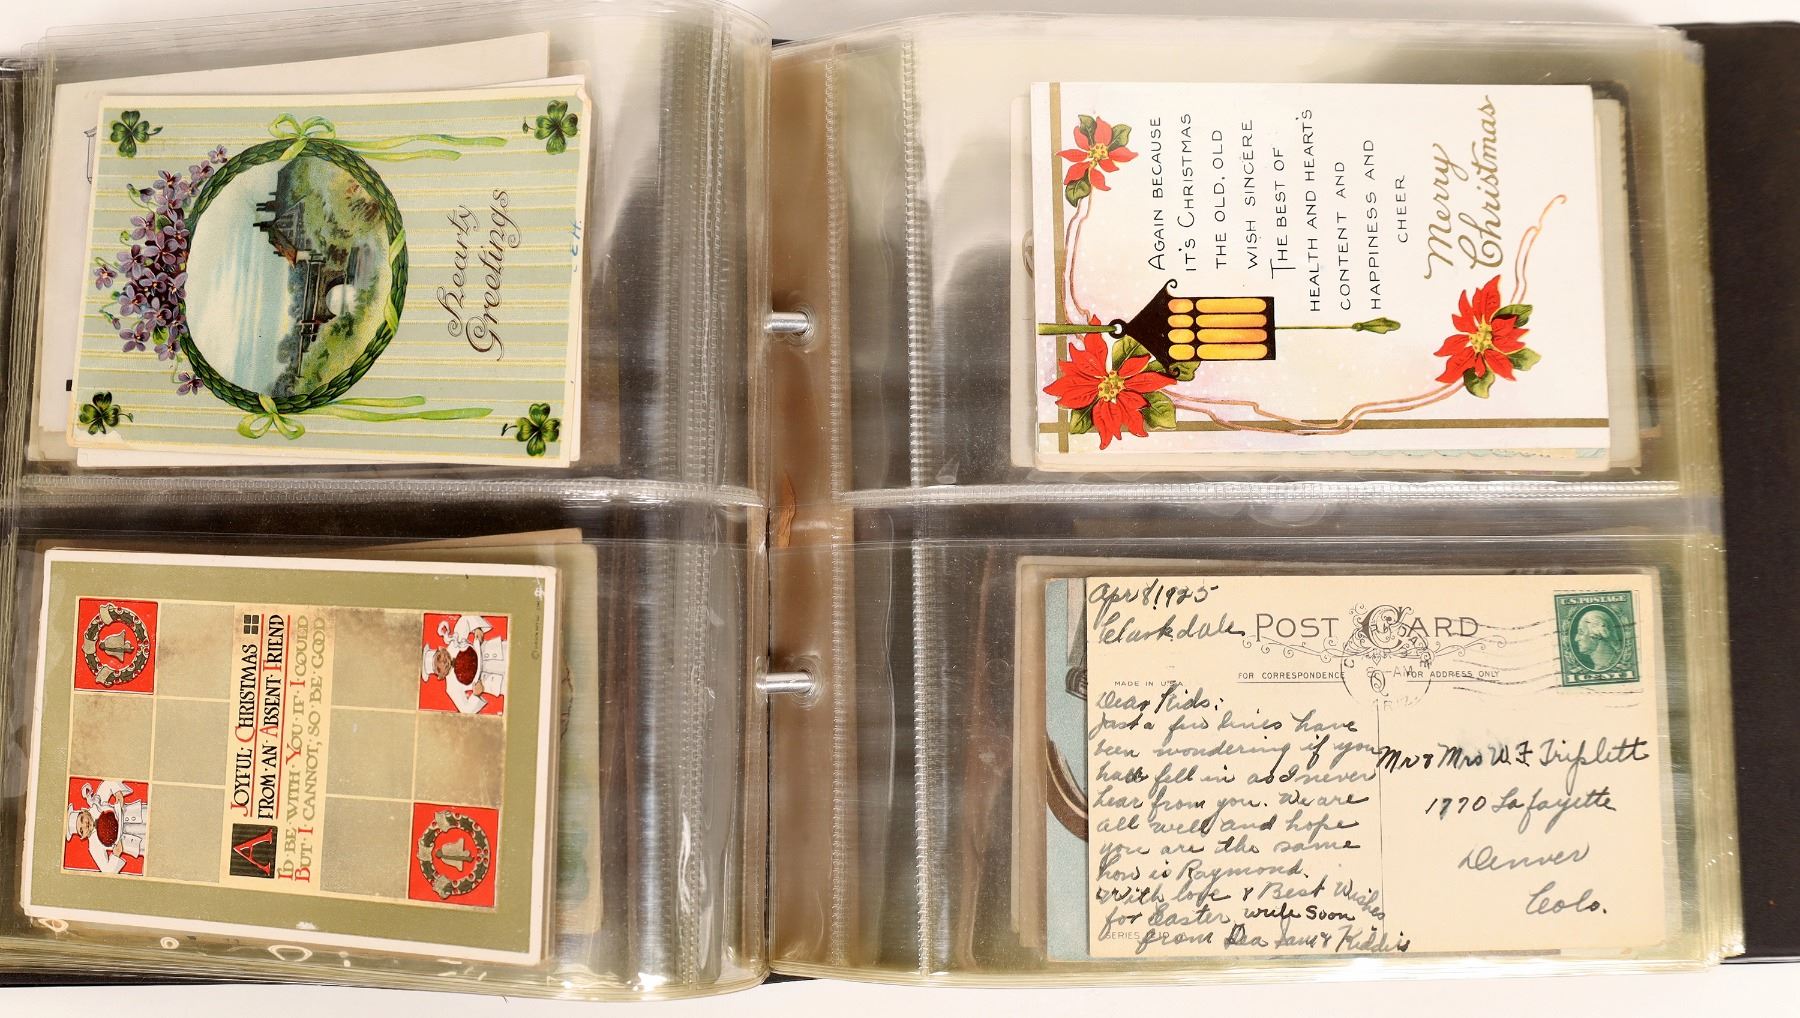 Hearty
Greetings
C.H.
AGAIN BECAUSE
IT'S CHRISTMAS
THE OLD, OLD
WISH SINCERE
THE BEST OF
HEALTH AND HEART'S
CONTENT AND
HAPPINESS AND
CHEER
Merry
Christmas
A JOYFUL CHRISTMAS
FROM·AN·ABSENT·FRIEND
I'D·BE·WITH·YOU·IF·I·COULD
BUT·I·CANNOT; SO·BE·GOOD
Apr 8, 1925
Clarkdale
POST CARD
U.S. POSTAGE
1 CENT 1
FOR CORRESPONDENCE
FOR ADDRESS ONLY
8-AM
ARIZ.
MADE IN U.S.A.
Dear Kids;
Just a few lines have
been wondering if you
have fell in as I never
hear from you. We are
all well and hope
you are the same
how is Raymond.
With love & Best Wishes
for Easter, write Soon
from Sam & Kiddies
SERIES
Mr & Mrs W F Triplett
1770 Lafayette
Denver
Colo.